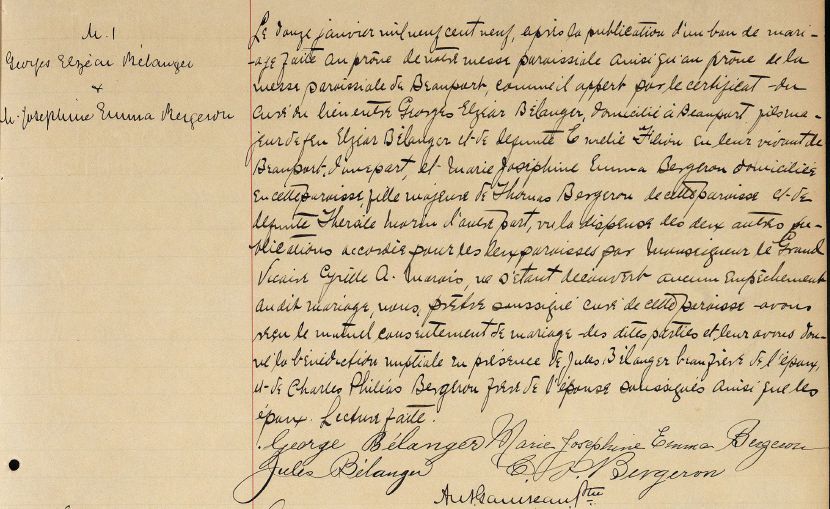 M. 1
Georges Elzéar Bélanger
&
M. Josephine Emma Bergeron
Le douze janvier mil neuf cent neuf, après la publication d'un ban de mari-
age faite au prône de notre messe paroissiale ainsi qu'au prône de la
messe paroissiale de Beauport, comme il appert par le certificat du
curé du lieu entre Georges Elzéar Bélanger, domicilié à Beauport fils ma-
jeur de feu Elzéar Bélanger et de defunte Emélie Filion en leur vivant de
Beauport, d'une part, et Marie Joséphine Emma Bergeron domiciliée
en cette paroisse, fille majeure de Thomas Bergeron de cette paroisse et de
defunte Thersile Morin d'autre part, vu la dispense des deux autres pu-
blications accordée pour les deux paroisses par Monseigneur le Grand
Vicaire Cyrille A. Marois, ne s'étant decouvert aucun empêchement
au dit mariage, nous, prêtre soussigné curé de cette paroisse avons
reçu le mutuel consentement de mariage des dites parties et leur avons don-
né la bénédiction nuptiale en présence de Jules Bélanger beau frère de l'époux,
et de Charles Philéas Bergeron frère de l'épouse soussignés ainsi que les
époux. Lecture faite.
George Bélanger Marie Josephine Emma Bergeron
Jules Bélanger C. P. Bergeron
Ptre